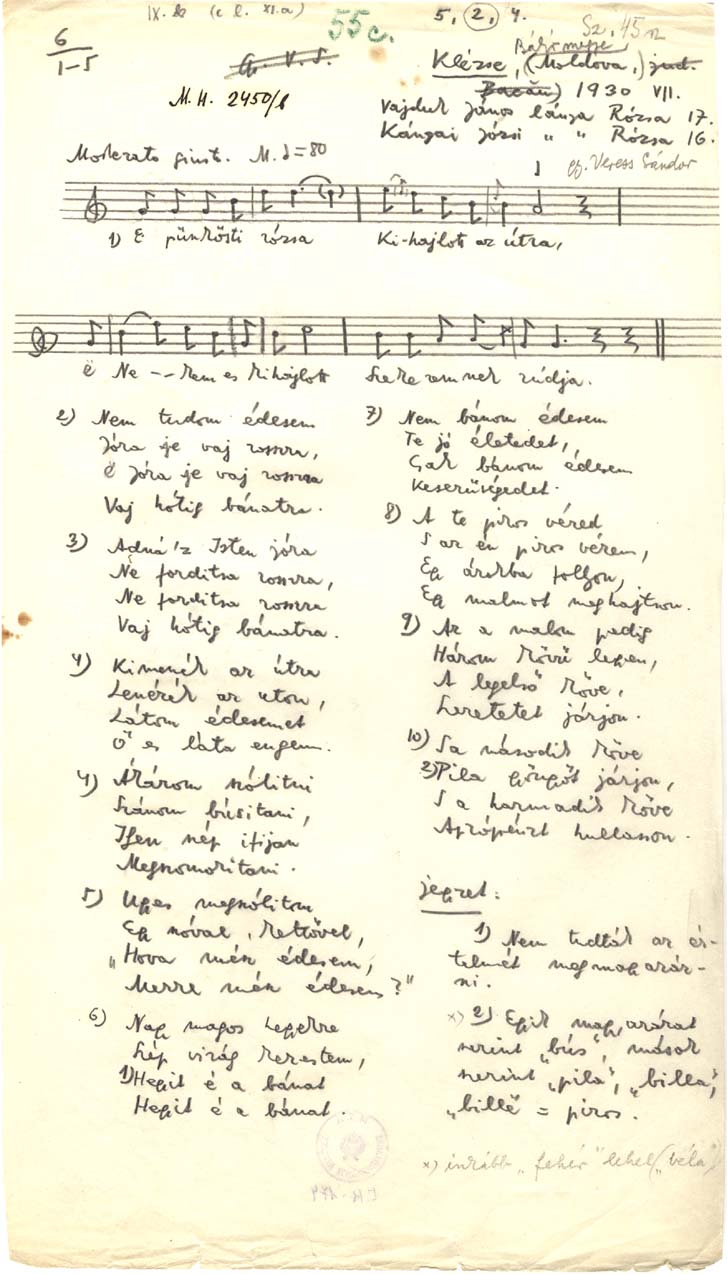 IX. k (e l. XI.a)
55c.
5, 2, 4.
Sz. 45 n
6
1-5
G. V. S.
M. H. 2450/b
Klézse, (Moldova,) jud.
Bacău) 1930 VII.
Vajduk János lánya Rózsa 17.
Kángai Józsi " " Rózsa 16.
gy. Veress Sándor
Moderato giust. M. = 80
1) E pünkösti rózsa Ki-hajlott az útra,
ë Ne -- kem es kihajlott Szekeremnek rúdja.
2) Nem tudom édesem
Jóra je vaj rosszra,
ë Jóra je vaj rosszra
Vaj hótig bánatra.
3) Adná 'z Isten jóra
Ne forditsa rosszra,
Ne forditsa rosszra
Vaj hótig bánatra.
4) Kimenék az útra
Lenézék az uton,
Látom édesemet
Ő es láta engem.
4) Átárom szólitni
Szánom búsitani,
Ilyen szép ifijan
Megszomoritani.
5) Ugyes megszólitom
Egy szóval, kettővel,
„Hova mész édesem,
Merre mész édesem?"
6) Nagy magos hegyekre
Szép virág kerestem,
1) Hegit é a bánat
Hegit é a bánat.
7) Nem bánom édesem
Te jó életedet,
Csak bánom édesem
Keserüségedet.
8) A te piros véred
S az én piros vérem,
Egy árokba folljon,
Egy malmot meghajtson.
9) Az a malom pedig
Három kövü legyen,
A legelső köve,
Szeretetet járjon.
10) Sa második köve
2) Pila gyöngyöt járjon,
S a harmadik köve
Aprópénzt hullasson.
jegyzet:
1) Nem tudták az ér-
telmét megmagyaráz-
ni.
x) 2) Egyik magyarázat
szerint „bús", mások
szerint „pila", „billa",
„billë = piros.
x) inkább „fehér" lehet („béla")